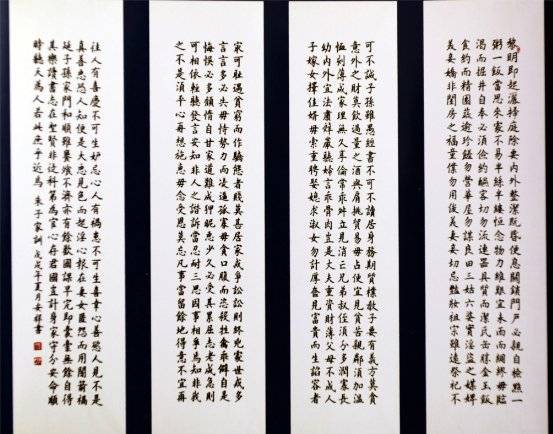 黎明即起灑掃庭除要內外整潔既昏便息關鎖門戶必親自檢點一
粥一飯當思來處不易半絲半縷恒念物力維艱宜未雨而綢繆毋臨
渴而掘井自奉必須儉約宴客切勿流連器具質而潔瓦缶勝金玉飯
食約而精園蔬逾珍饈勿營華屋勿謀良田三姑六婆實淫盜之媒婢
美妾嬌非閨房之福童僕勿用俊美妻妾切忌豔妝祖宗雖遠祭祀不
可不誠子孫雖愚經書不可不讀居身務期質樸教子要有義方莫貪
意外之財莫飲過量之酒與肩挑貿易毋占便宜見貧苦親鄰須加溫
恤刻薄成家理無久享倫常乖舛立見消亡兄弟叔侄須分多潤寡長
幼內外宜法肅辭嚴聽婦言乖骨肉豈是丈夫重資財薄父母不成人
子嫁女擇佳婿毋索重聘娶媳求淑女勿計厚奩見富貴而生諂容者
最可恥遇貧窮而作驕態者賤莫甚居家戒爭訟訟則終凶處世戒多
言言多必失毋恃勢力而凌逼孤寡毋貪口腹而恣殺牲禽乖僻自是
悔悞必多頹惰自甘家道難成狎昵惡少久必受其累屈志老成急則
可相依輕聽發言安知非人之譖訴當忍耐三思因事相爭焉知非我
之不是須平心再想施惠毋念受恩莫忘凡事當留餘地得意不宜再
往人有喜慶不可生妒忌心人有禍患不可生喜幸心善欲人見不是
真善惡恐人知便是大惡見色而起淫心報在妻女匿怨而用暗箭禍
延子孫家門和順雖饔飧不濟亦有餘歡國課早完即囊橐無餘自得
其樂讀書志在聖賢非徒科第為官心存君國豈計身家守分安命順
時聽天為人若此庶乎近焉 朱子家訓 戊戌年夏月安祥書